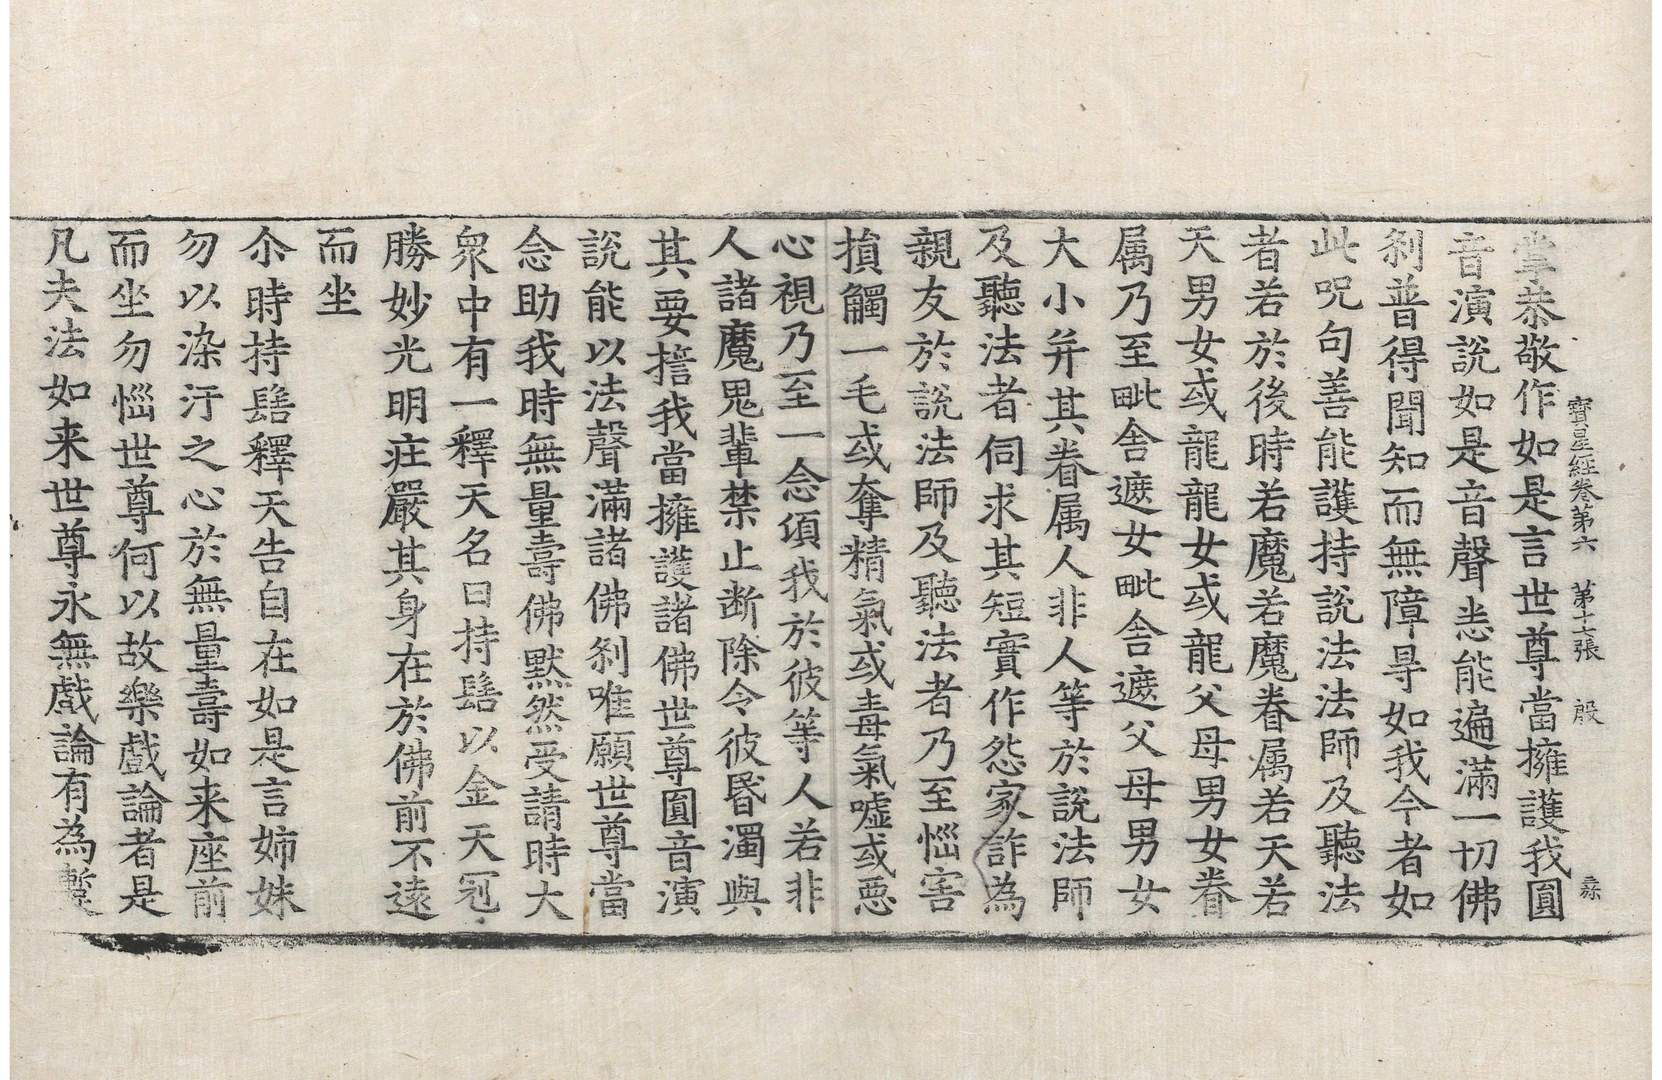 寶星經卷第六　第十六張　殷
掌恭敬作如是言世尊當擁護我圓
音演說如是音聲悉能遍滿一切佛
刹普得聞知而無障㝵如我今者如
此呪句善能護持說法法師及聽法
者若於後時若魔若魔眷属若天若
天男女或龍龍女或龍父母男女眷
属乃至毗舍遮女毗舍遮父母男女
大小并其眷属人非人等於說法師
及聽法者伺求其短實作怨家詐為
親友於說法師及聽法者乃至惱害
損觸一毛或奪精氣或毒氣噓或惡
心視乃至一念頃我於彼等人若非
人諸魔鬼輩禁止断除令彼昏濁與
其要誓我當擁護諸佛世尊圓音演
說能以法聲滿諸佛刹唯願世尊當
念助我時無量壽佛默然受請時大
衆中有一釋天名曰持髻以金天冠
勝妙光明莊嚴其身在於佛前不遠
而坐
尒時持髻釋天告自在如是言姉妹
勿以染汙之心於無量壽如来座前
而坐勿惱世尊何以故樂戲論者是
凡夫法如来世尊永無戲論有為暫